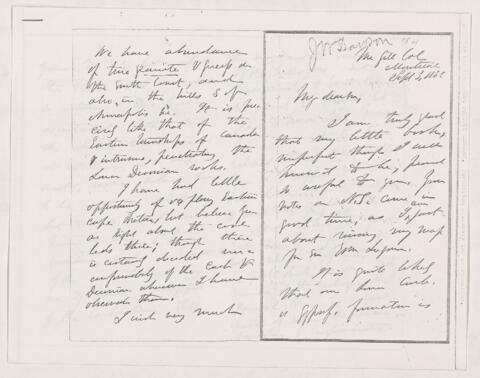 J W Dawson
McGill Col
Montreal
Sept 2, 186
My dear
I am truly glad
that my little book,
imperfect though I well
know it to be, proved
so useful to you. Your
notes on N.S. come in
good time; as I am just
about revising my map
for Sir Wm Logan.
It is quite likely
that our Lower Carb.
or Gypsif. formation is
We have abundance
of true granite & gneiss on
the south coast, and
also, in the hills S. of
Annapolis &c. It is pre
cisely like that of the
Eastern townships of Canada
& intrusive, penetrating the
Lower Devonian rocks.
I have had little
opportunity of exploring Eastern
Cape Breton but believe you
are right about the coal
beds there; though there
is certainly decided
unconformability of the Carb &
Devonian wherever I have
observed them.
I wish very much